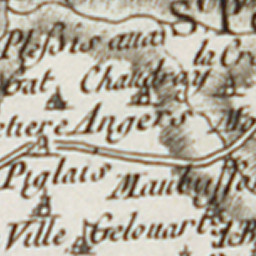 S. P
Plessis aua
la Cr
Gat Chaudray
etiere Angers Mo
Piglais Maubusso
Ville Gelouart